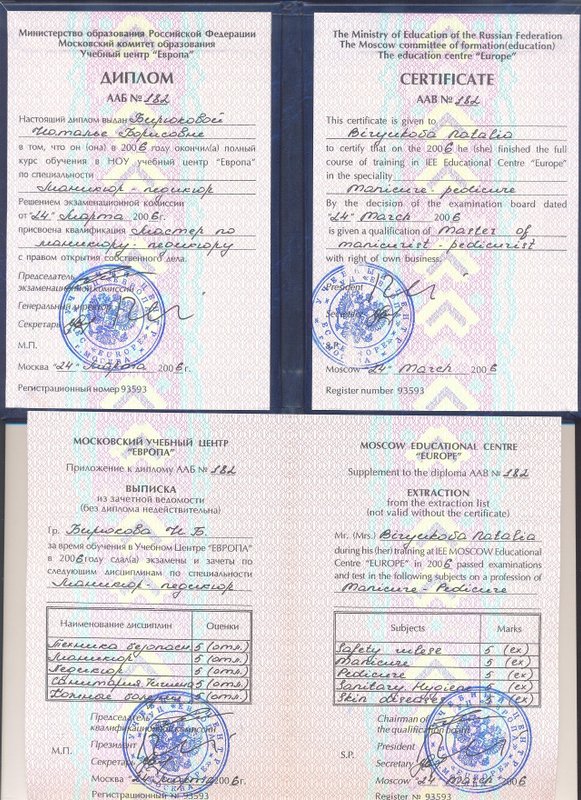 Министерство образования Российской Федерации
Московский комитет образования
Учебный центр "Европа"
ДИПЛОМ
ААБ № 182
Настоящий диплом выдан Бирюковой
Наталье Борисовне
в том, что он (она) в 2006 году окончил(а) полный
курс обучения в НОУ учебный центр "Европа"
по специальности
Маникюр - педикюр
Решением экзаменационной комиссии
от "24" Марта 2006 г.
присвоена квалификация Мастер по
маникюру - педикюру
с правом открытия собственного дела.
Председатель
экзаменационной комиссии
Генеральный директор
Секретарь
М.П.
Москва "24" Марта 2006 г.
Регистрационный номер 93593
The Ministry of Education of the Russian Federation
The Moscow committee of formation(education)
The education centre "Europe"
CERTIFICATE
AAB № 182
This certificate is given to
Natalia
to certify that on the 2006 he (she) finished the full
course of training in IEE Educational Centre "Europe"
in the speciality
Manicure - pedicure
By the decision of the examination board dated
"24" March 2006
is given a qualification of Master of
manicurist - pedicurist
with right of own business.
President
Secretary
Moscow "24" March 2006
Register number 93593
МОСКОВСКИЙ УЧЕБНЫЙ ЦЕНТР
"ЕВРОПА"
Приложение к диплому ААБ № 182
ВЫПИСКА
из зачетной ведомости
(без диплома недействительна)
Гр. Н. Б.
за время обучения в Учебном Центре "ЕВРОПА"
в 2006 году сдал(а) экзамены и зачеты по
следующим дисциплинам по специальности
Маникюр - педикюр
Наименование дисциплин Оценки
Техника безопасн 5 (отл.)
Маникюр 5 (отл.)
Педикюр 5 (отл.)
Санитария. Гигиена 5 (отл.)
Кожные болезни 5 (отл.)
Председатель
квалификационной комиссии
Президент
М.П.
Секретарь
Москва "24" Марта 2006 г.
Регистрационный № 93593
MOSCOW EDUCATIONAL CENTRE
"EUROPE"
Supplement to the diploma AAB № 182
EXTRACTION
from the extraction list
(not valid without the certificate)
Mr. (Mrs.) Natalia
during his (her) training at IEE MOSCOW Educational
Centre "EUROPE" in 2006 passed examinations
and test in the following subjects on a profession of
Manicure - Pedicure
Subjects Marks
Safety 5 (ex)
Manicure 5 (ex)
Pedicure 5 (ex)
Sanitary. Hygiene 5 (ex)
Skin 5 (ex)
Chairman of
the qualification board
President
S.P.
Secretary
Moscow "24" March 2006
Register № 93593